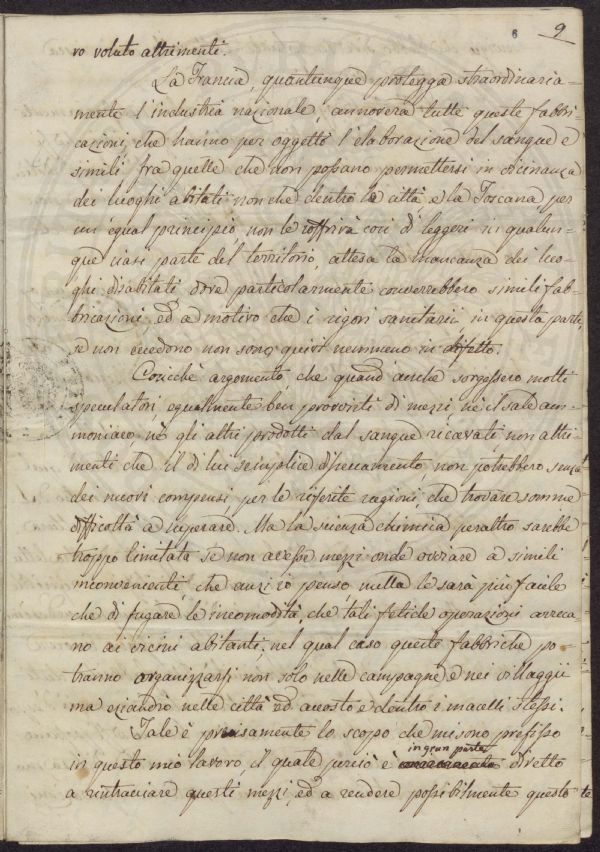 6 9
ro voluto altrimenti.
La Francia, quantunque protegga straordinaria-
mente l'industria nazionale, annovera tutte queste fabbri-
cazioni, che hanno per oggetto l'elaborazione del sangue e
simili fra quelle che non possano permettersi in vicinanza
dei luoghi abitati non che dentro le città e la Toscana per
un egual principio, non le soffrirà così di leggeri in qualun-
que siasi parte del territorio, attesa la mancanza dei luo-
ghi disabitati dove particolarmente converrebbero simili fab-
bricazioni, ed a motivo che i rigori sanitarii in questa parte,
se non eccedono non sono quivi nemmeno in difetto.
Cosicchè argomento, che quand'anche sorgessero molti
speculatori, egualmente ben provvisti di mezzi, nè il sale am-
moniaco, nè gli altri prodotti dal sangue ricavati, non altri-
menti che il di lui semplice disseccamento, non potrebbero senza
dei nuovi compensi, per le riferite ragioni, che trovare somme
difficoltà a superare. Ma la scienza chimica peraltro sarebbe
troppo limitata se non avesse mezzi onde ovviare a simili
inconvenienti, che anzi io penso, nulla le sarà più facile
che di fugare le incomodità, che tali fetide operazioni arreca-
no ai vicini abitanti; nel qual caso queste fabbriche po-
tranno organizzarsi non solo nelle campagne e nei villaggii
ma eziandio nelle città ed accosto e dentro i macelli stessi.
Tale è precisamente lo scopo che mi sono prefisso
in gran parte
in questo mio lavoro, il quale perciò è diretto
a rintracciare questi mezzi, ed a rendere possibilmente questo